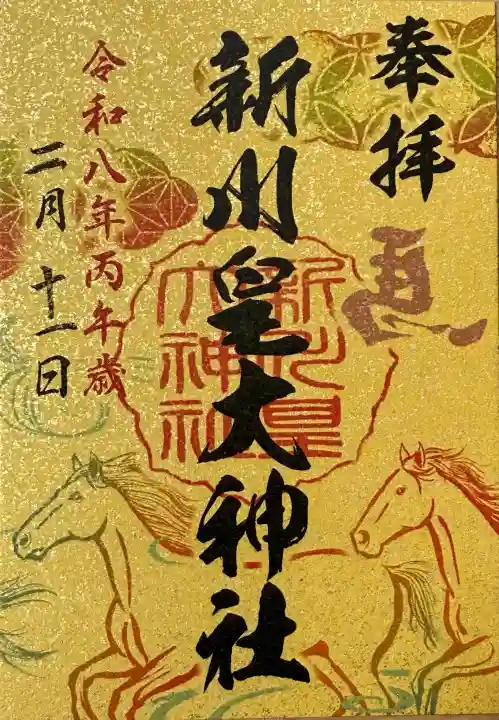 奉拝
馬
新川皇大神社
新川皇
大神社
令和八年丙午歳
二月十一日